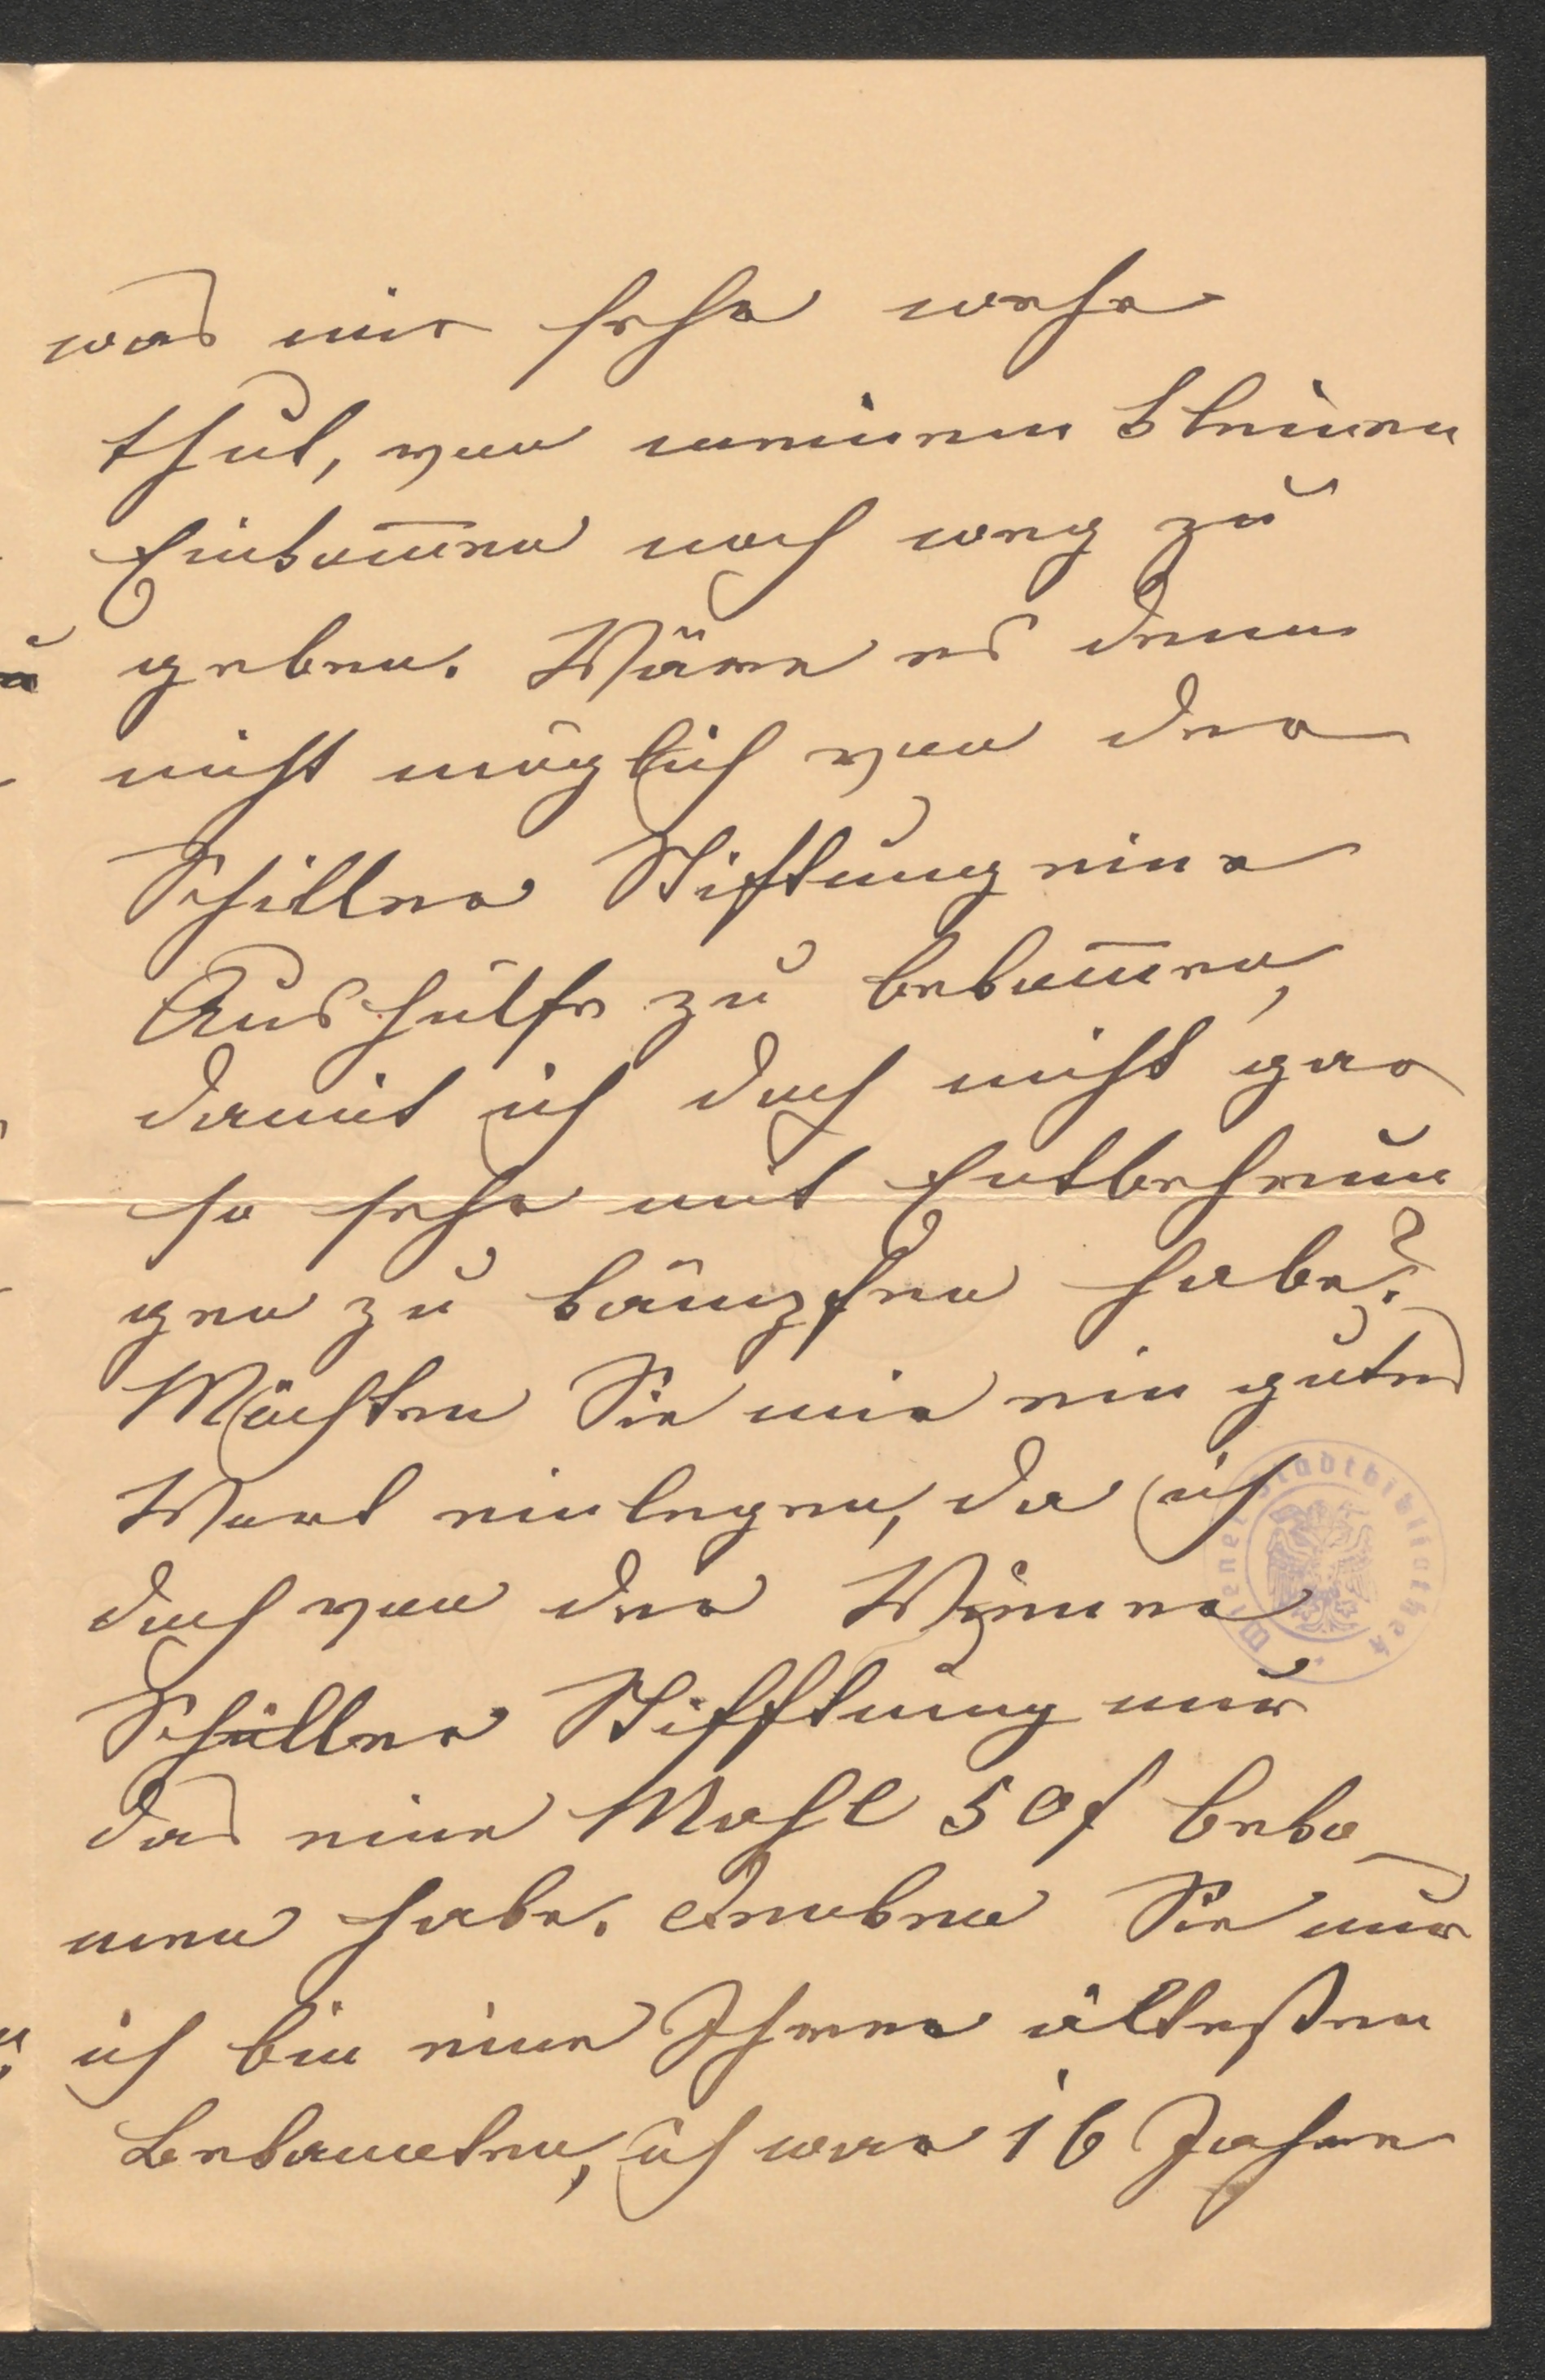 was mir sehr wehe
thut, von meinem kleinen
Einkom̅en noch weg zu
geben. Wäre es denn
nicht möglich von der
Schiller Stiftung eine
Aushülfe zu bekom̅en,
damit ich doch nicht gar
so sehr mit Entbehrun
gen zu kämpfen habe?
Möchten Sie mir ein gutes
Wort einlegen, da ich
doch von der Wiener
Schiller Stifftung nur
das eine Mahl 50f beko_
men habe. Denken Sie nur
ich bin eine Ihrer ältesten
Bekannten, ich war 16 Jahre
Wiener Stadtbibliothek